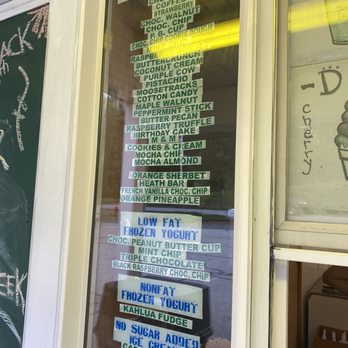 ACK
COFFEE
STRAWBERRY
CHOC. WALNUT
CHOC. CHIP
P. B. CUP
BUTTERCRUNCH
COCONUT CREAM
PURPLE COW
PISTACHIO
MOOSETRACKS
COTTON CANDY
MAPLE WALNUT
PEPPERMINT STICK
BUTTER PECAN
RASPBERRY TRUFFLE
BIRTHDAY CAKE
M & M
COOKIES & CREAM
MOCHA CHIP
MOCHA ALMOND
ORANGE SHERBET
HEATH BAR
FRENCH VANILLA CHOC. CHIP
ORANGE PINEAPPLE
LOW FAT
FROZEN YOGURT
CHOC. PEANUT BUTTER CUP
MINT CHIP
TRIPLE CHOCOLATE
BLACK RASPBERRY CHOC. CHIP
NONFAT
FROZEN YOGURT
KAHLUA FUDGE
NO SUGAR ADDED
ICE CREAM
EEK
-D
cherry